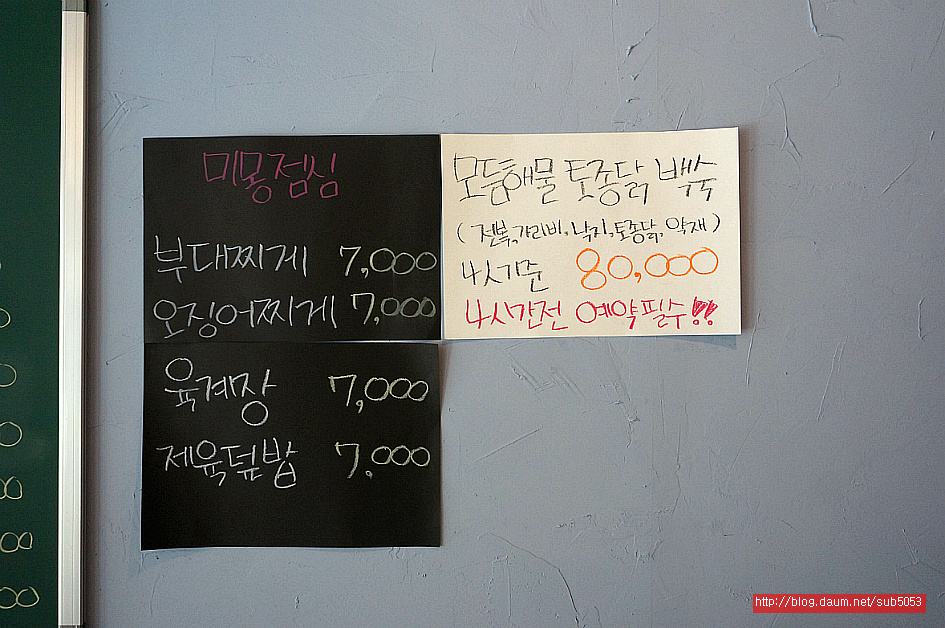 미몽점심
부대찌게 7,000
오징어찌게 7,000
육계장 7,000
제육덮밥 7,000
모듬해물 토종닭 백숙
(전복,가리비,낙지,토종닭,약재)
4人기준 80,000
4시간전 예약필수!!
http://blog.daum.net/sub5053